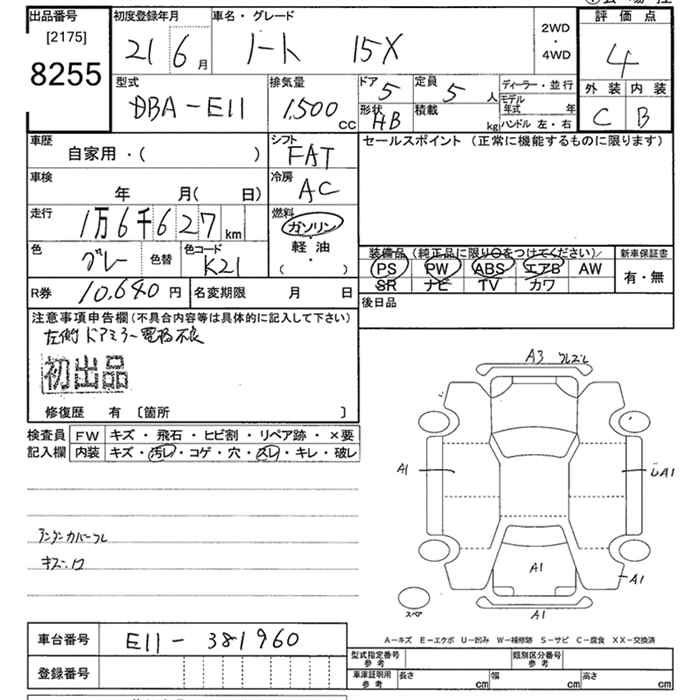 出品番号
[2175]
8255
初度登録年月
21 6月
車名・グレード
ノート 15X
2WD
・
4WD
評価点
4
外装 内装
C B
型式
DBA-E11
排気量
1,500 cc
ドア
5
定員
5 人
形状
HB
積載
kg
ディーラー・並行
モデル年式 年
ハンドル 左・右
車歴
自家用・( )
シフト
FAT
セールスポイント (正常に機能するものに限ります)
車検
年 月( 日)
冷房
AC
走行
1万6千627km
燃料
ガソリン
軽油
( ・ )
色
グレー
色替
色コード
K21
装備品 (純正品に限り○をつけてください)
PS PW ABS エアB AW
SR ナビ TV カワ
新車保証書
有・無
R券
10,640円
名変期限 月 日
後日品
注意事項申告欄(不具合内容等は具体的に記入して下さい)
左側ドアミラー電格不良
初出品
修復歴 有 [箇所 ]
検査員記入欄
FW キズ・飛石・ヒビ割・リペア跡・×要
内装 キズ・汚レ・コゲ・穴・スレ・キレ・破レ
アンダーカバーフレ
キズ
A3
A1
A1
A1
A1
A1
スペア
A-キズ E-エクボ U-凹み W-補修跡 S-サビ C-腐食 XX-交換済
車台番号
E11-381960
登録番号
型式指定番号
参考
類別区分番号
参考
車庫証明用
参考
長さ cm
幅 cm
高さ cm